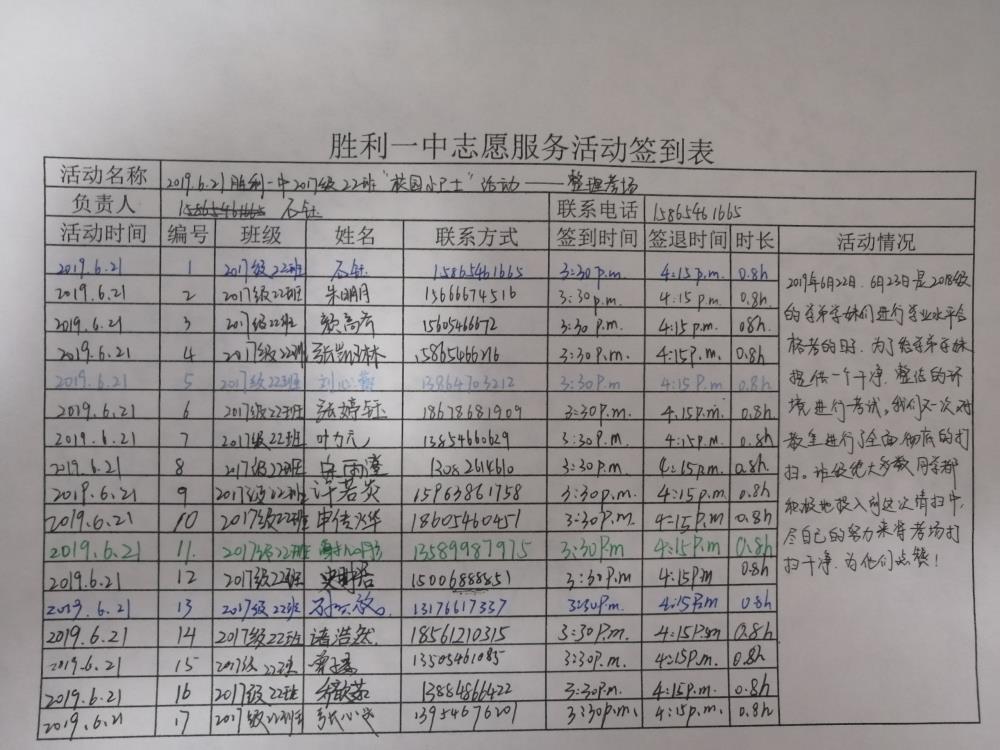 胜利一中志愿服务活动签到表
活动名称 2019.6.21胜利一中2017级22班“校园小卫士”活动——整理考场
负责人 石钰 联系电话 15865461665
活动时间 编号 班级 姓名 联系方式 签到时间 签退时间 时长 活动情况
2019.6.21 1 2017级22班 石钰 15865461665 3:30p.m. 4:15p.m. 0.8h
2019.6.21 2 2017级22班 朱明月 15666674516 3:30p.m. 4:15p.m. 0.8h.
2019.6.21 3 2017级22班 15605466672 3:30 p.m. 4:15p.m. 0.8h.
2019.6.21 4 2017级22班 15865466216 3:30P.m. 4:15P.m. 0.8h
2019.6.21 5 2017级22班 13864703212 3:30P.m 4:15P.m 0.8h
2019.6.21 6 2017级22班 张婷钰 18678681909 3:30P.m. 4:15P.m. 0.8h
2019.6.21 7 2017级22班 叶力元 13854660629 3:30P.m. 4:15P.m. 0.8h.
2019.6.21 8 2017级22班 3:30P.m. 4:15P.m. 0.8h
2019.6.21 9 2017级22班 许若炎 15963861758 3:30p.m. 4:15p.m. 0.8h
2019.6.21 10 2017级22班 18605460451 3:30P.m. 4:15P.m 0.8h
2019.6.21 11. 2017级22班 13589987975 3:30P.m 4:15P.m 0.8h
2019.6.21 12 2017级22班 15006888851 3:30P.m 4:15P.m 0.8h
2019.6.21 13 2017级22班 13176617337 3:30P.m. 4:15P.m 0.8h
2019.6.21 14 2017级22班 诸浩然 18561210315 3:30P.m. 4:15P.m 0.8h
2019.6.21 15 2017级22班 13505461085 3:30P.m. 4:15P.m. 0.8h.
2019.6.21 16 2017级22班 13884866422 3:30P.m. 4:15P.m. 0.8h
2019.6.21 17 2017级22班 13954676201 3:30p.m. 4:15P.m. 0.8h
2019年6月22日、6月23日是2018级
的学弟学妹们进行学业水平合
格考的日子.为了给学弟学妹
提供一个干净、整洁的环
境进行考试,我们又一次对
教室进行了全面彻底的打
扫。班级绝大多数同学都
积极地投入到这次清扫中,
尽自己的努力来将考场打
扫干净.为他们点赞!